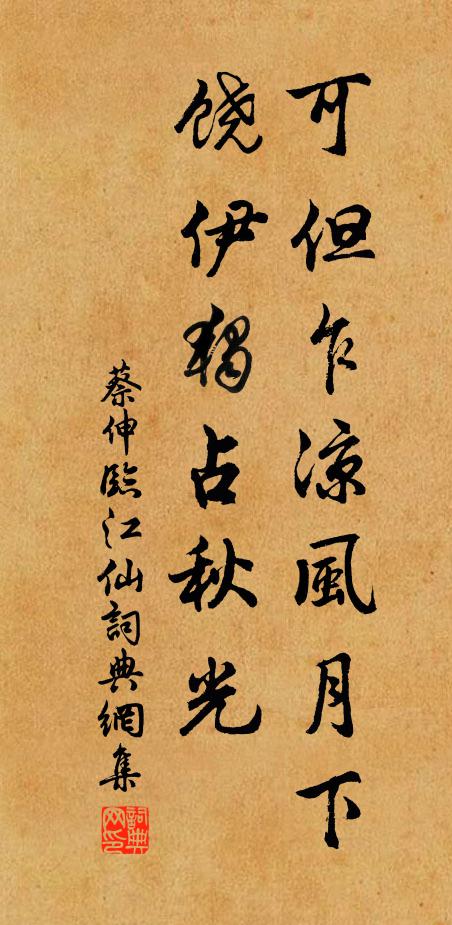 可但乍凉風月下
饒伊獨占秋光
蔡伸臨江仙詞典網集
詞典网印